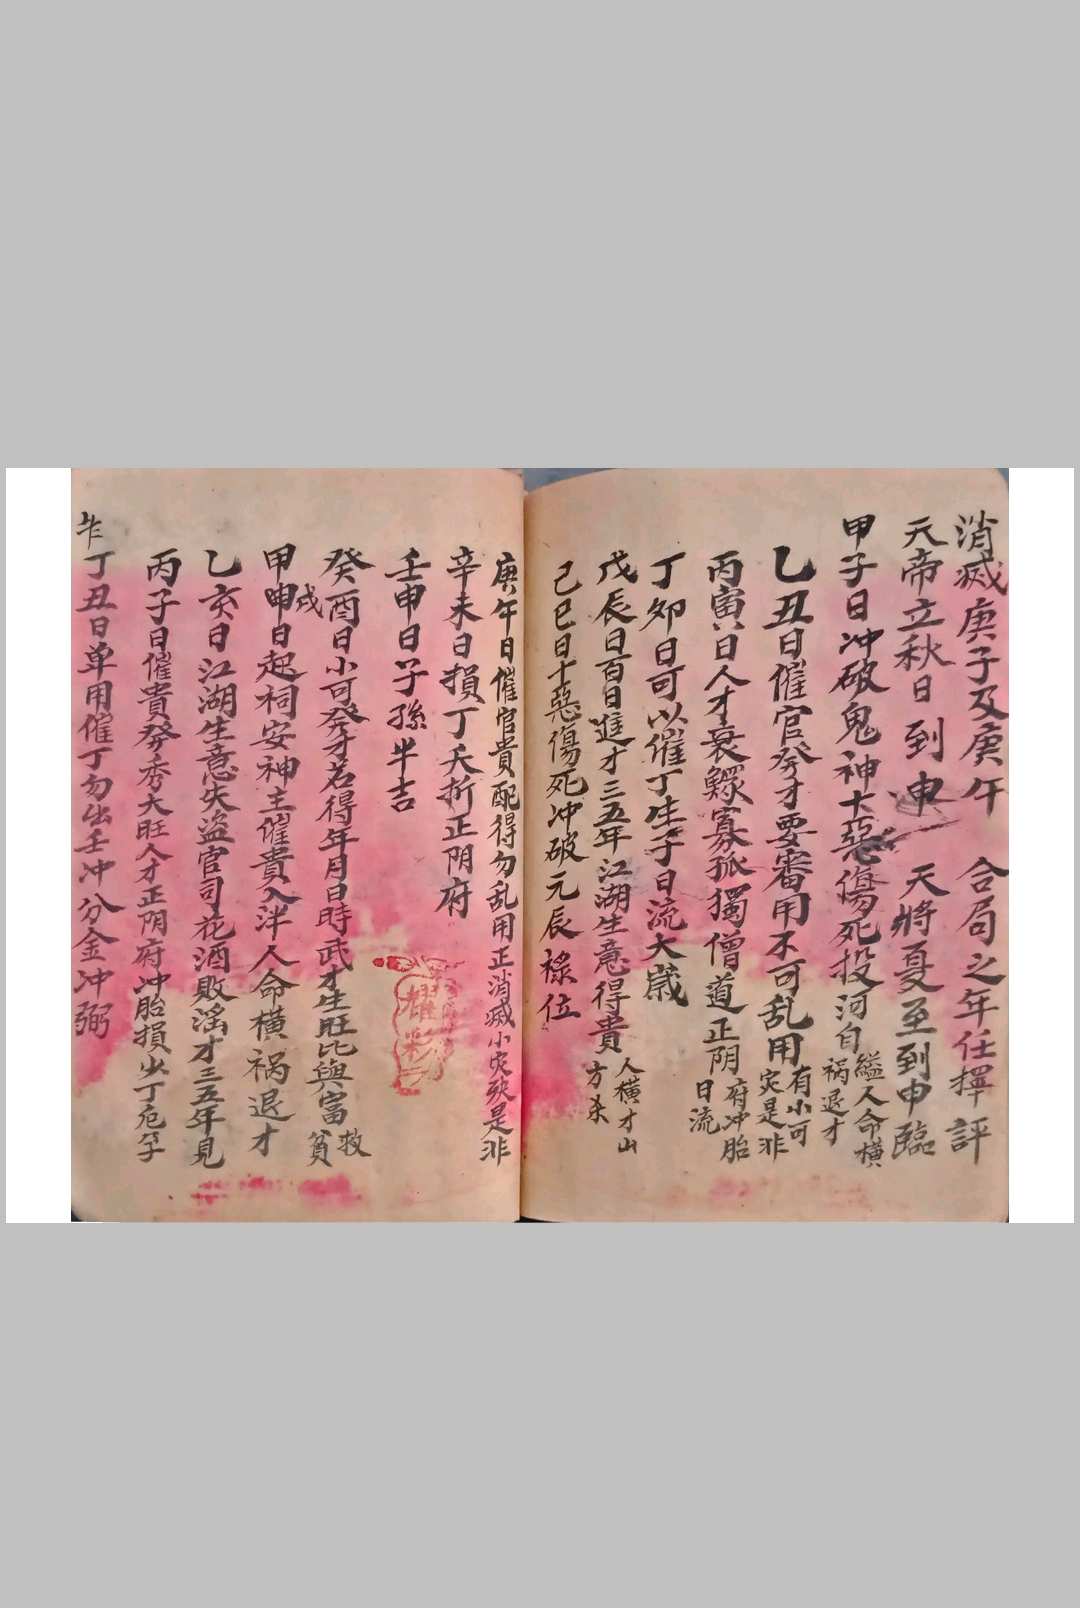 消滅庚子及庚午　合局之年任擇評
天帝立秋日到申　天將夏至到申臨
甲子日冲破鬼神十惡傷死投河自縊人命橫禍退才
乙丑日催官癸才要審用不可乱用有小可灾是非
丙寅日人才衰鰥寡孤獨僧道正阴府冲胎日流
丁卯日可以催丁生子日流大嵗
戊辰日百日進才三五年江湖生意得貴人橫才山方杀
己巳日十惡傷死冲破元辰祿位
庚午日催官貴配得勿乱用正消滅小灾殃是非
辛未日損丁夭折正阴府
壬申日子孫半吉
癸酉日小可癸才若得年月日時武才生旺比與富救貧
甲戌日起祠安神主催貴入泮人命橫禍退才
乙亥日江湖生意失盜官司花酒敗滛才三五年見
丙子日催貴發秀大旺人才正阴府冲胎損少丁
丁丑日单用催丁勿出壬冲分金冲弼
耀彩